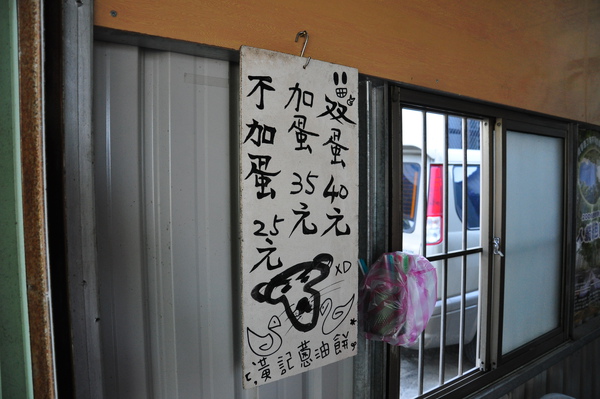 双蛋40元
加蛋35元
不加蛋25元
XD
黃記蔥油餅